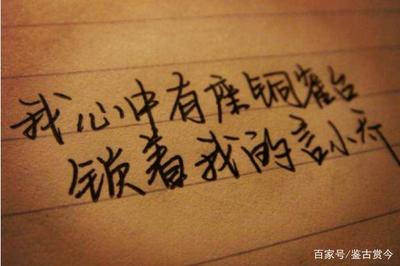 我心中有座铜雀台
锁着我的言小乔
百家号/鉴古赏今